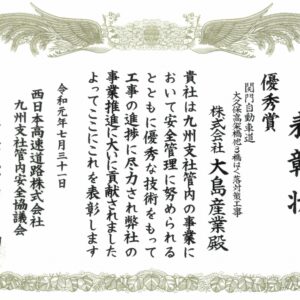 表彰状
優秀賞
関門自動車道
大久保高架橋他3橋はく落対策工事
株式会社 大島産業殿
貴社は九州支社管内の事業に
おいて安全管理に努められる
とともに優秀な技術をもって
工事の進捗に尽力され弊社の
事業推進に大いに貢献されました
よってここにこれを表彰します
令和元年七月三十一日
西日本高速道路株式会社
九州支社管内安全協議会